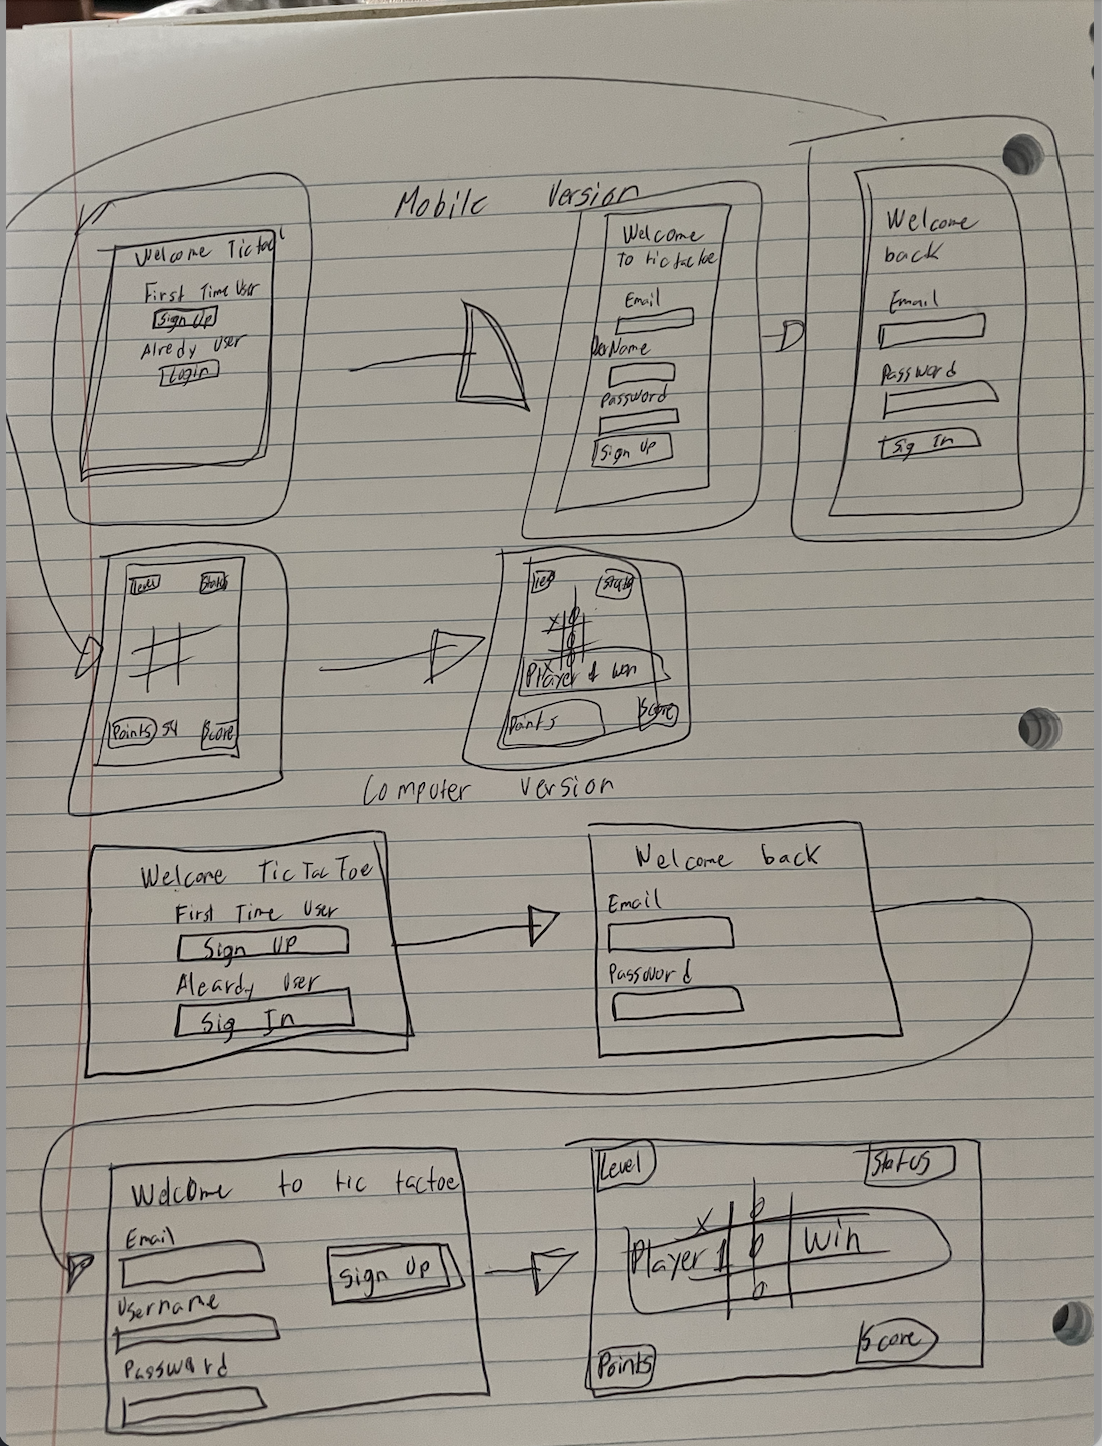 Mobile Version
Welcome Tictoe
First Time User
Sign Up
Alredy User
Login
Welcome
To tictactoe
Email
UserName
Password
Sign Up
Welcome
back
Email
Password
Sig In
Status
Points 54
Score
Status
X O
O
X O
Player 1 win
Points
Score
Computer Version
Welcome TicTacToe
First Time User
Sign UP
Aleardy User
Sig In
Welcome back
Email
Password
Welcome to tic tactoe
Email
Sign Up
Username
Password
Level
Status
X O
Player 1 O Win
O
Score
Points